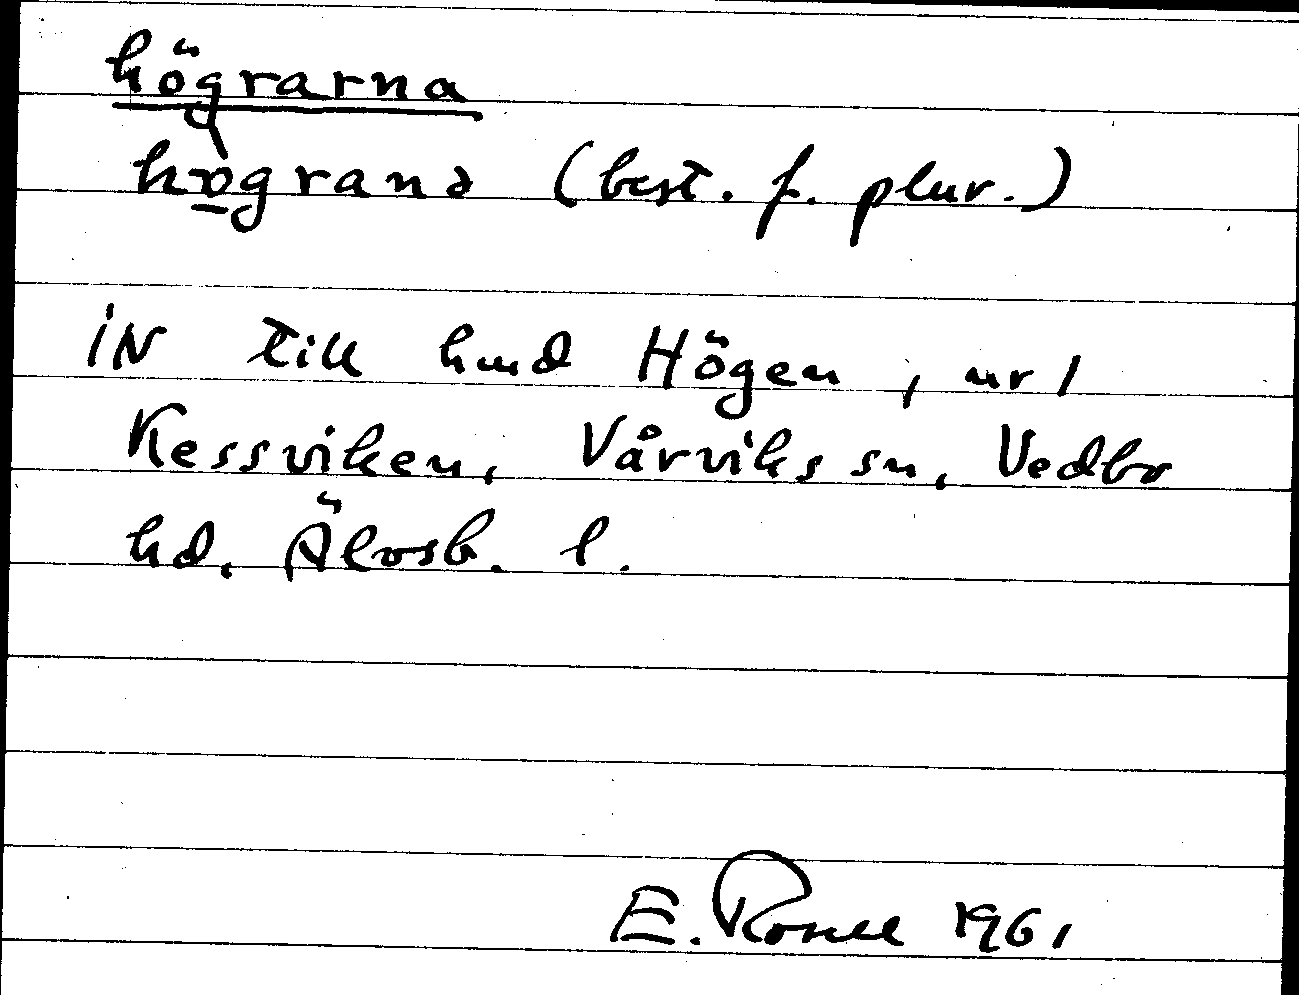 högrarna
hògranə (best. f. plur.)
iN till hmd Högen, nr 1
Kessviken, Vårviks sn, Vedbo
hd, Älvsb. l.
E. 1961